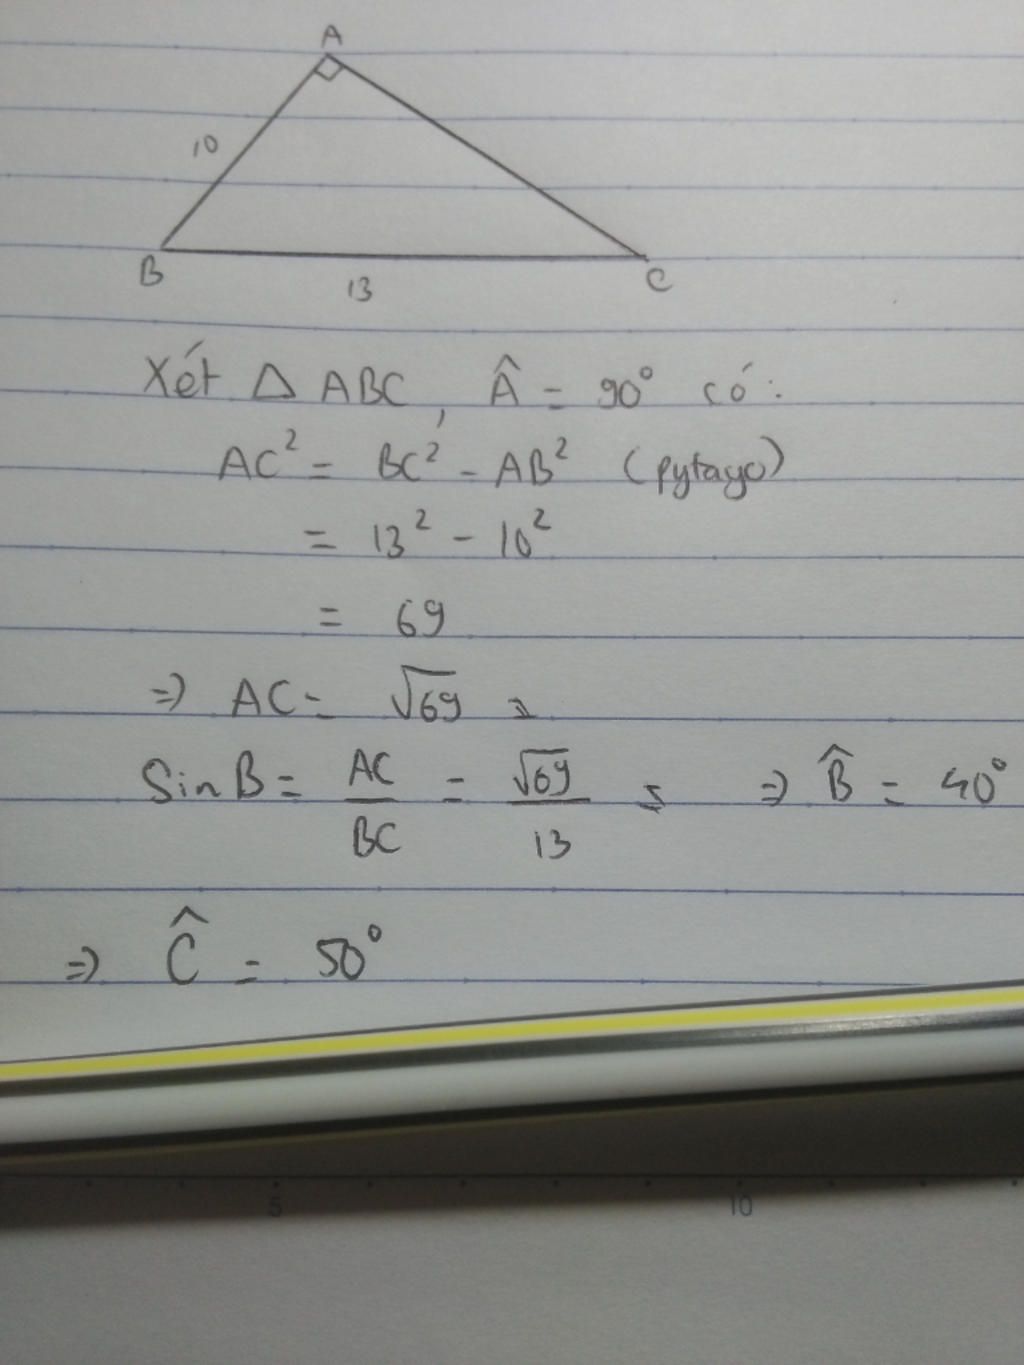 A
10
B
13
C
Xét △ ABC, Â = 90° có:
AC² = BC² - AB² (pytago)
= 13² - 10²
= 69
=> AC = √69
Sin B = AC/BC = √69/13 => B̂ = 40°
=> Ĉ = 50°
5 10